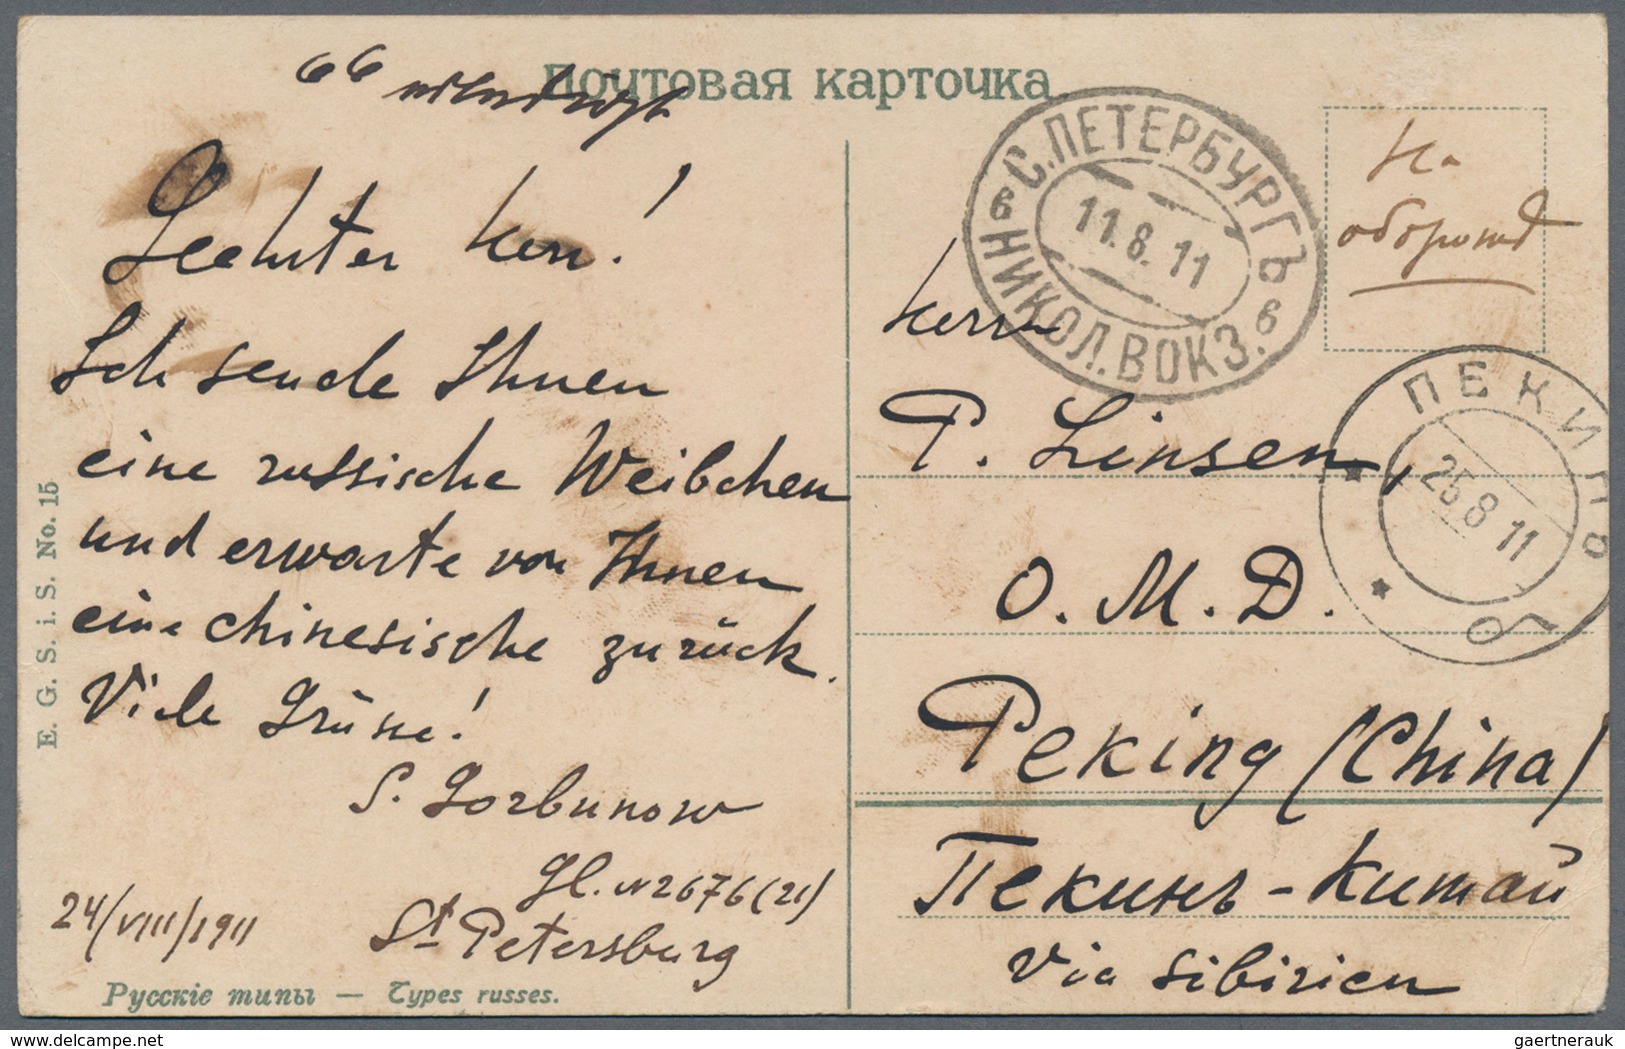 Почтовая карточка
Geehrter Herr!
Ich sende Ihnen
eine russische Weibchen
und erwarte von Ihnen
eine chinesische zurück.
Viele Grüsse!
S. Gorbunow
Gl. N 2676 (21)
24/VIII/1911
St Petersburg
E. G. S. i. S. No. 15
Русскіе типы — Types russes.
С. ПЕТЕРБУРГЪ
11.8.11
НИКОЛ. ВОКЗ.
в в
На
оборотѣ
ПЕКИНЪ
25 8 11
б
Herrn
P. Linsen,
O. M. D.
Peking (China)
Пекинъ - Китай
Via Sibirien
www.delcampe.net
gaertnerauk